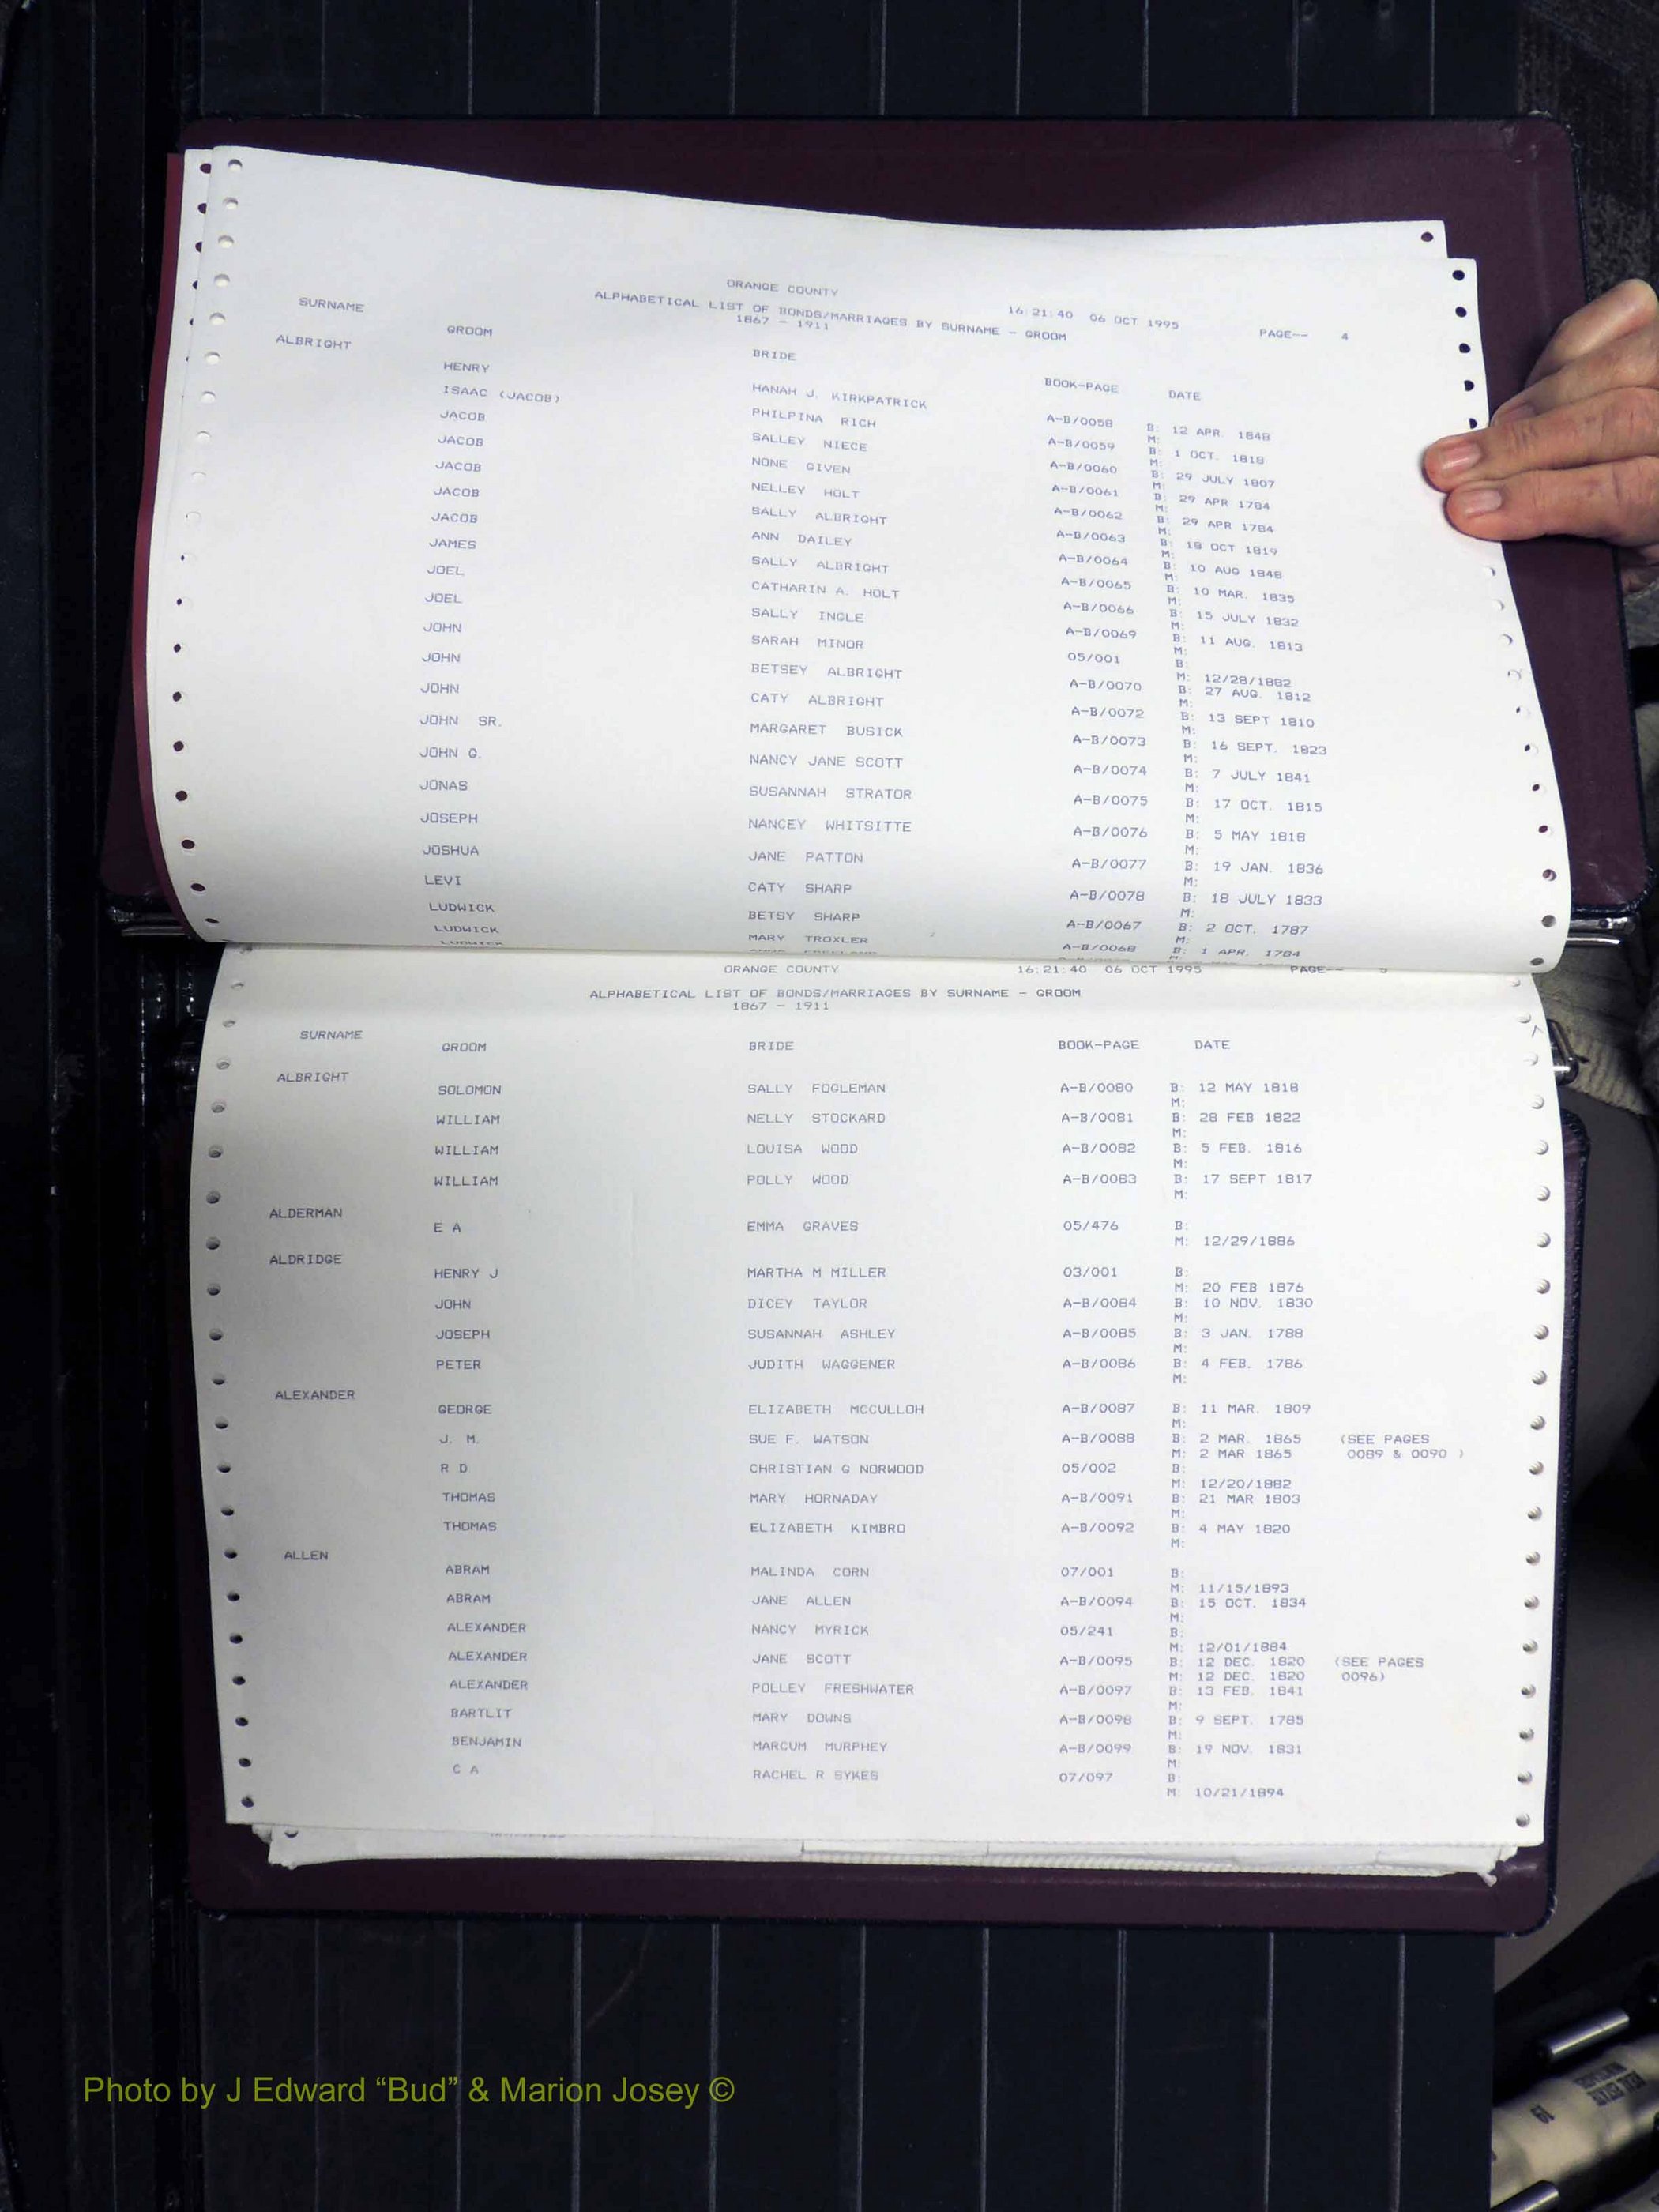 ORANGE COUNTY 16:21:40 06 OCT 1995 PAGE-- 4
ALPHABETICAL LIST OF BONDS/MARRIAGES BY SURNAME - GROOM
1867 - 1911
SURNAME GROOM BRIDE BOOK-PAGE DATE
ALBRIGHT
HENRY HANAH J. KIRKPATRICK A-B/0058 B: 12 APR. 1848
M:
ISAAC (JACOB) PHILPINA RICH A-B/0059 B: 1 OCT. 1818
M:
JACOB SALLEY NIECE A-B/0060 B: 29 JULY 1807
M:
JACOB NONE GIVEN A-B/0061 B: 29 APR 1784
M:
JACOB NELLEY HOLT A-B/0062 B: 29 APR 1784
M:
JACOB SALLY ALBRIGHT A-B/0063 B: 18 OCT 1819
M:
JACOB ANN DAILEY A-B/0064 B: 10 AUG 1848
M:
JAMES SALLY ALBRIGHT A-B/0065 B: 10 MAR. 1835
M:
JOEL CATHARIN A. HOLT A-B/0066 B: 15 JULY 1832
M:
JOEL SALLY INGLE A-B/0069 B: 11 AUG. 1813
M:
JOHN SARAH MINOR 05/001 B:
M: 12/28/1882
JOHN BETSEY ALBRIGHT A-B/0070 B: 27 AUG. 1812
M:
JOHN CATY ALBRIGHT A-B/0072 B: 13 SEPT 1810
M:
JOHN SR. MARGARET BUSICK A-B/0073 B: 16 SEPT. 1823
M:
JOHN G. NANCY JANE SCOTT A-B/0074 B: 7 JULY 1841
M:
JONAS SUSANNAH STRATOR A-B/0075 B: 17 OCT. 1815
M:
JOSEPH NANCEY WHITSITTE A-B/0076 B: 5 MAY 1818
M:
JOSHUA JANE PATTON A-B/0077 B: 19 JAN. 1836
M:
LEVI CATY SHARP A-B/0078 B: 18 JULY 1833
M:
LUDWICK BETSY SHARP A-B/0067 B: 2 OCT. 1787
M:
LUDWICK MARY TROXLER A-B/0068 B: 1 APR. 1784
LUDWICK
ORANGE COUNTY 16:21:40 06 OCT 1995 PAGE-- 5
ALPHABETICAL LIST OF BONDS/MARRIAGES BY SURNAME - GROOM
1867 - 1911
SURNAME GROOM BRIDE BOOK-PAGE DATE
ALBRIGHT
SOLOMON SALLY FOGLEMAN A-B/0080 B: 12 MAY 1818
M:
WILLIAM NELLY STOCKARD A-B/0081 B: 28 FEB 1822
M:
WILLIAM LOUISA WOOD A-B/0082 B: 5 FEB. 1816
M:
WILLIAM POLLY WOOD A-B/0083 B: 17 SEPT 1817
M:
ALDERMAN
E A EMMA GRAVES 05/476 B:
M: 12/29/1886
ALDRIDGE
HENRY J MARTHA M MILLER 03/001 B:
M: 20 FEB 1876
JOHN DICEY TAYLOR A-B/0084 B: 10 NOV. 1830
M:
JOSEPH SUSANNAH ASHLEY A-B/0085 B: 3 JAN. 1788
M:
PETER JUDITH WAGGENER A-B/0086 B: 4 FEB. 1786
M:
ALEXANDER
GEORGE ELIZABETH MCCULLOH A-B/0087 B: 11 MAR. 1809
M:
J. M. SUE F. WATSON A-B/0088 B: 2 MAR. 1865 (SEE PAGES
M: 2 MAR 1865 0089 & 0090 )
R D CHRISTIAN G NORWOOD 05/002 B:
M: 12/20/1882
THOMAS MARY HORNADAY A-B/0091 B: 21 MAR 1803
M:
THOMAS ELIZABETH KIMBRO A-B/0092 B: 4 MAY 1820
M:
ALLEN
ABRAM MALINDA CORN 07/001 B:
M: 11/15/1893
ABRAM JANE ALLEN A-B/0094 B: 15 OCT. 1834
M:
ALEXANDER NANCY MYRICK 05/241 B:
M: 12/01/1884
ALEXANDER JANE SCOTT A-B/0095 B: 12 DEC. 1820 (SEE PAGES
M: 12 DEC. 1820 0096)
ALEXANDER POLLEY FRESHWATER A-B/0097 B: 13 FEB. 1841
M:
BARTLIT MARY DOWNS A-B/0098 B: 9 SEPT. 1785
M:
BENJAMIN MARCUM MURPHEY A-B/0099 B: 19 NOV. 1831
M:
C A RACHEL R SYKES 07/097 B:
M: 10/21/1894
Photo by J Edward “Bud” & Marion Josey ©